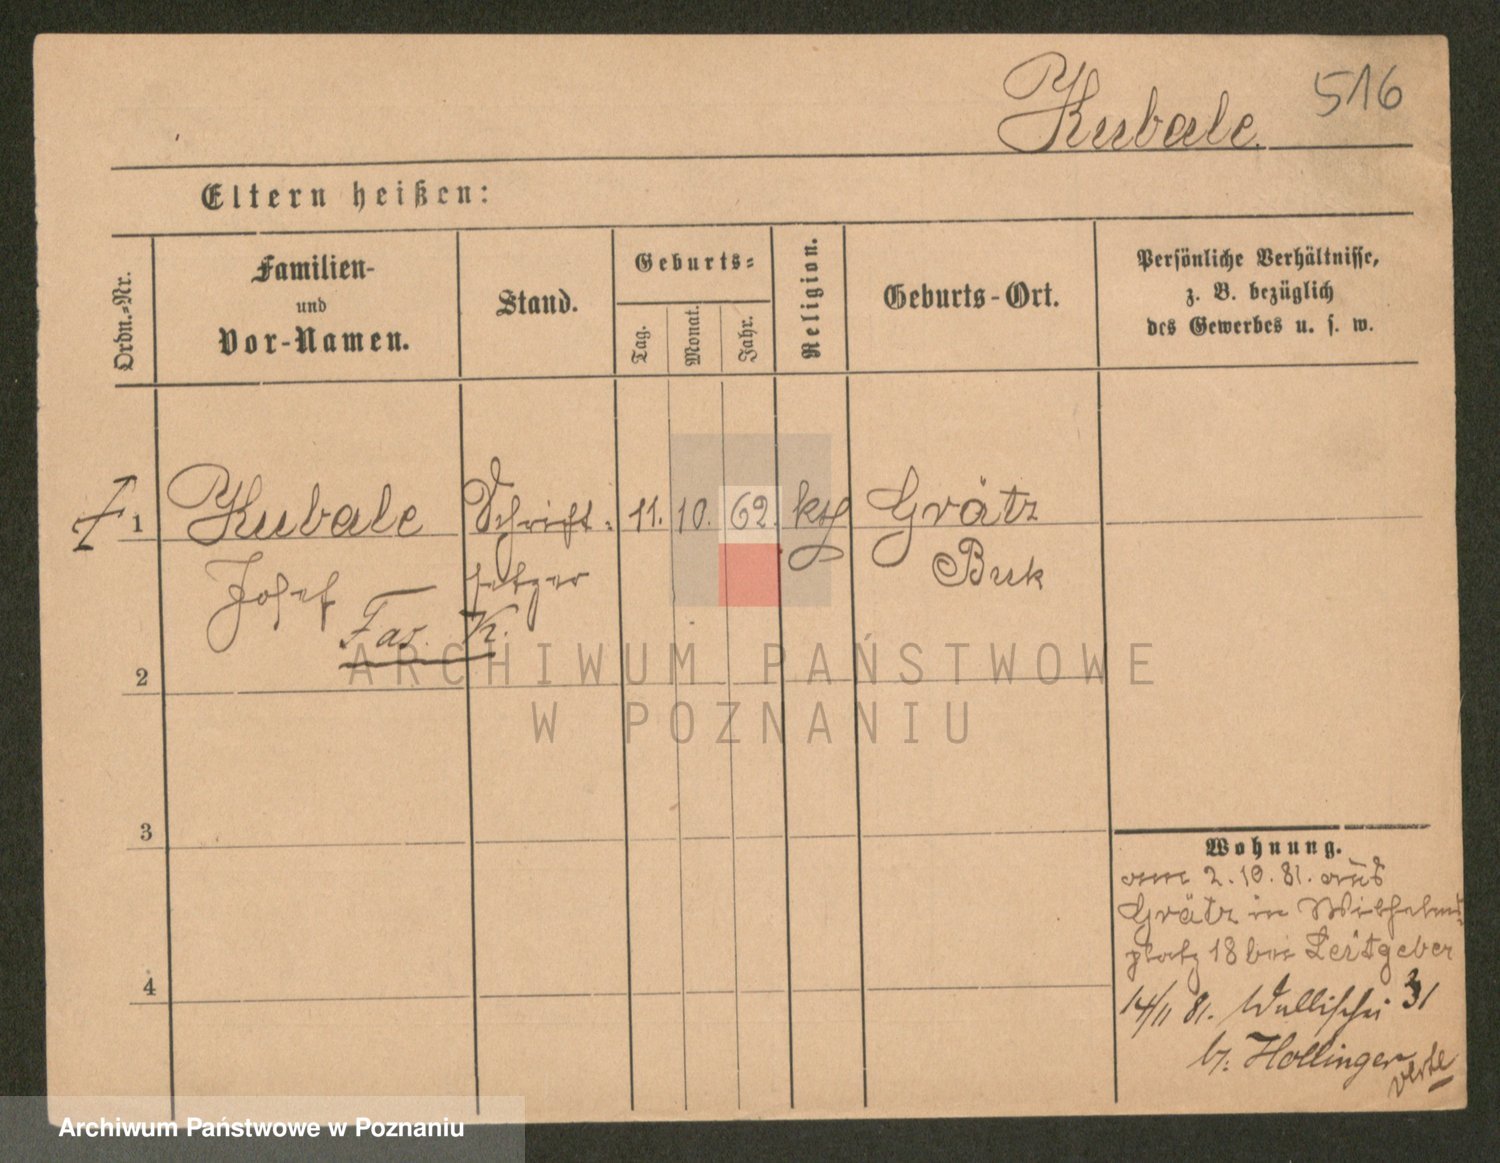 516
Kubale.
Eltern heißen:
Ordn.-Nr.
Familien-
und
Vor-Namen.
Stand.
Geburts-
Tag.
Monat.
Jahr.
Religion.
Geburts-Ort.
Persönliche Verhältnisse,
z. B. bezüglich
des Gewerbes u. s. w.
1 Kubale Schrift- 11. 10. 62. kth Grätz
Josef setzer Buk
Fas. K.
2
3
4
Wohnung.
vom 2. 10. 81. aus
Grätz in Wilhelms-
platz 18 bei Leitgeber
14/11 81. Wallischei 31
b. Hollinger
verte
ARCHIWUM PAŃSTWOWE
W POZNANIU
Archiwum Państwowe w Poznaniu